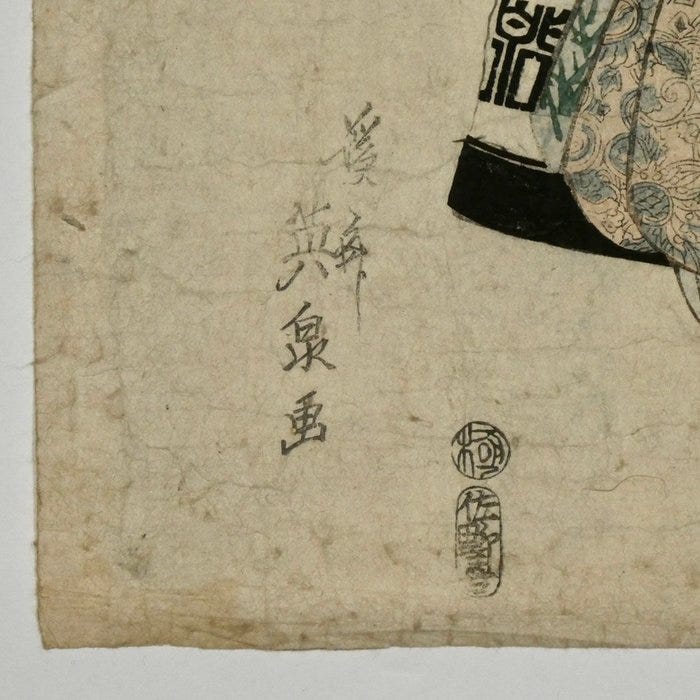 渓斎
英泉画
極
佐野喜